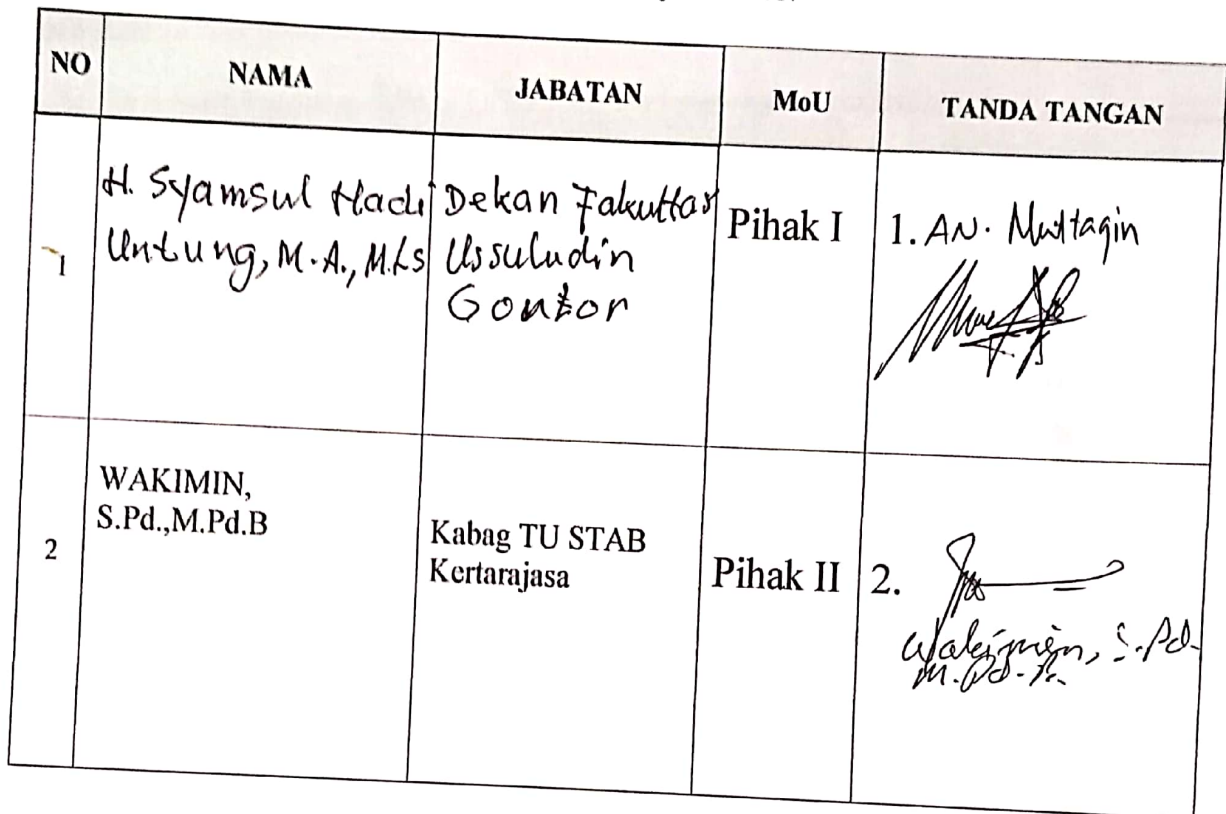 NO NAMA JABATAN MoU TANDA TANGAN
1
H. Syamsul Hadi
Untung, M.A., M.Ls
Dekan Fakultas
Ussuludin
Gontor
Pihak I
1. AN. Muttaqin
2
WAKIMIN,
S.Pd.,M.Pd.B
Kabag TU STAB
Kertarajasa
Pihak II
2.
Wakimin, S.Pd.
M.Pd.B.